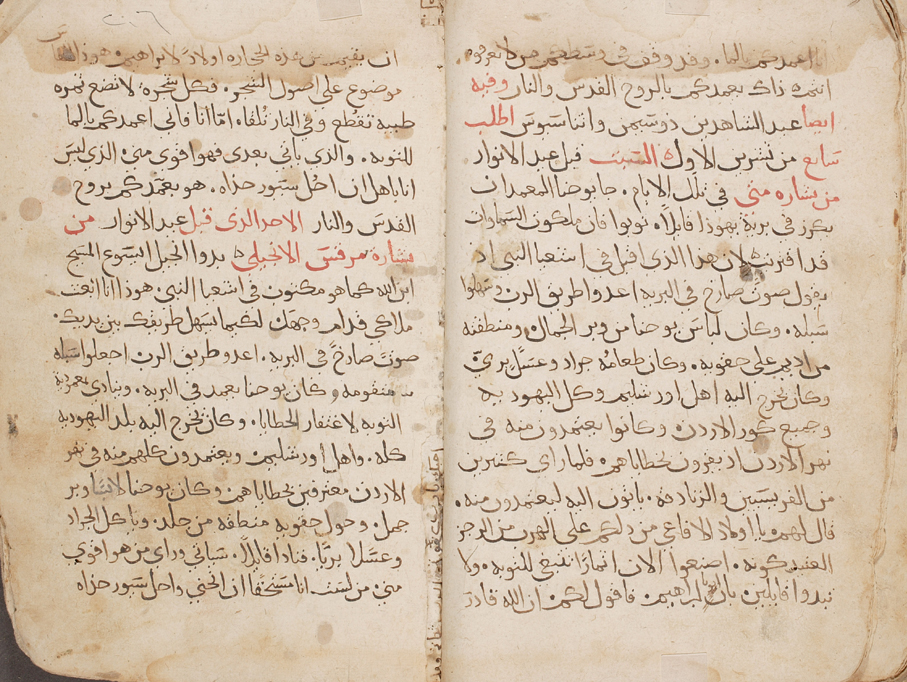 انا اعمدكم بالما. وقد وقف في وسطكم من لا تعرفوه
انتم. ذاك يعمدكم بالروح القدس والنار وفيه
ايضا عيد الشاهدين
الطلب
سابع من تشرين الاول السبت قبل عيد الانوار
من بشاره متى في تلك الايام. جا يوحنا المعمدان
يكرز في برية يهوذا قايلا. توبوا فان ملكوت السماوات
قد اقتربت. لان هذا الذي اقبل في اشعيا النبي اذ
يقول صوت صارخ في البريه اعدوا طريق الرب وسهلوا
سبله. وكان لباس يوحنا من وبر الجمال. ومنطقته
من ادم على حقويه. وكان طعامه جراد وعسل بري
وكان يخرج اليه اهل اورشليم وكل اليهوديه
وجميع كور الاردن. وكانوا يعتمدون منه في
نهر الاردن اذ يقرون بخطاياهم. فلما راى كثيرين
من الفريسيين والزنادقه. ياتون اليه ليعتمدون منه.
قال لهم. يا اولاد الافاعي من دلكم على الهرب من الرجز
العتيد كونه. اصنعوا الان اثمارا تنبغي للتوبه. ولا
تبدوا قايلين بان ابونا ابراهيم. فاقول لكم ان الله قادر
ان يقيم من هذه الحجاره اولادا لابراهيم. وهوذا الفاس
موضوع على اصول الشجر. فكل شجره. لا تصنع ثمره
طيبه تقطع وفي النار تلقا. اما انا فاني اعمدكم بالما
للتوبه. والذي ياتي بعدي فهو اقوى مني. الذي ليس
انا باهل ان احل سيور حذاه. هو يعمدكم بروح
القدس والنار الاحد الذي قبل عيد الانوار من
بشارة مرقس الانجيلي بدو انجيل ايسوع المسيح
ابن الله كما هو مكتوب في اشعيا النبي هوذا انا ابعث
ملاكي قدام وجهك لكيما يسهل طريقك بين يديك.
صوت صارخ في البريه. اعدو طريق الرب اجعلوا سبله
مستقومه وكان يوحنا يعمد في البريه. وينادي بمعمودية
التوبه لاغتفار الخطايا. وكان يخرج اليه بلد اليهوديه
كله. واهل اورشليم. ويعتمدون كلهم منه في نهر
الاردن معترفين بخطاياهم. وكان يوحنا لابسا وبر
جمل. وحول حقويه منطقه من جلد. وياكل الجراد
وعسلا بريا. فنادا قايلا. سياتي وراي من هو اقوى
مني. من لست انا مستحقا ان انحني واحل سيور حذاه